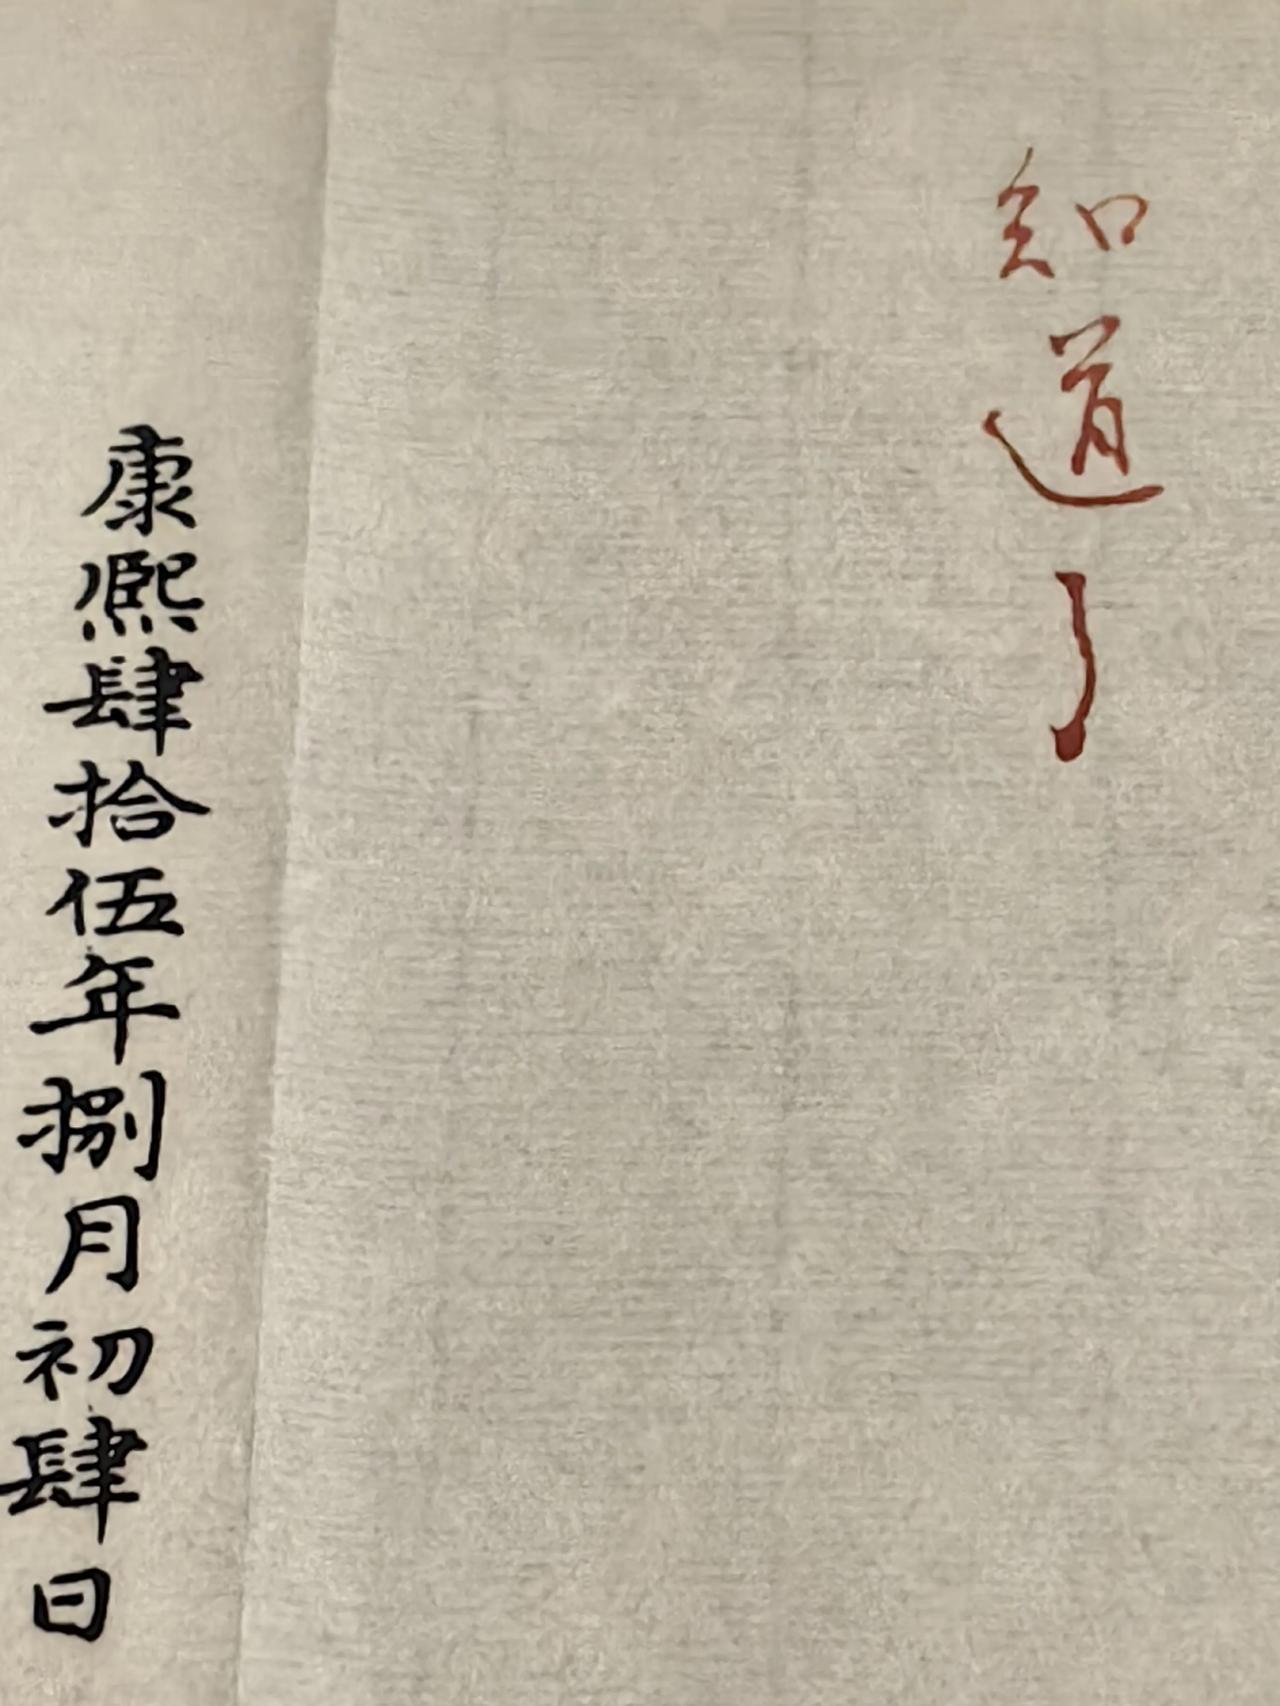 知道了
康熙肆拾伍年捌月初肆日